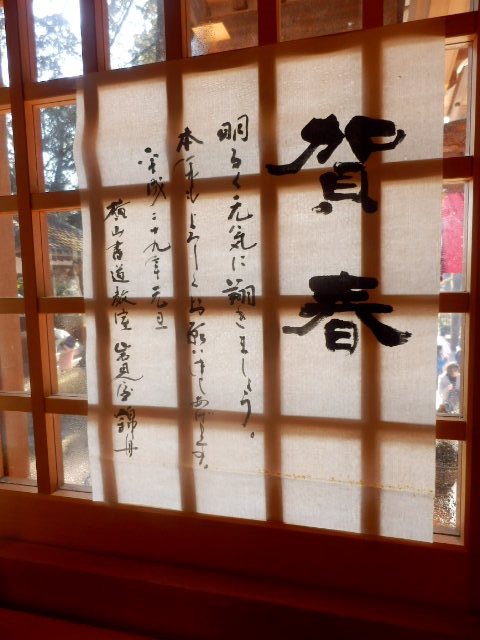 賀春
明るく元気に翔きましょう。
本年もよろしくお願い申しあげます。
平成二十九年元旦
横山書道教室 岩見 錦丹